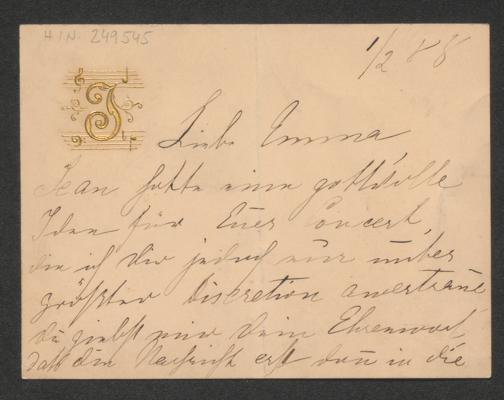 H.I.N. 249545
1/2 88
J
Liebe Emma
Jean hatte eine gottvolle
Idee für Euer Concert,
die ich Dir jedoch nur unter
größter Discretion anvertraue
du giebst mir Dein Ehrenwort,
daß die Nachricht erst dan̄ in die